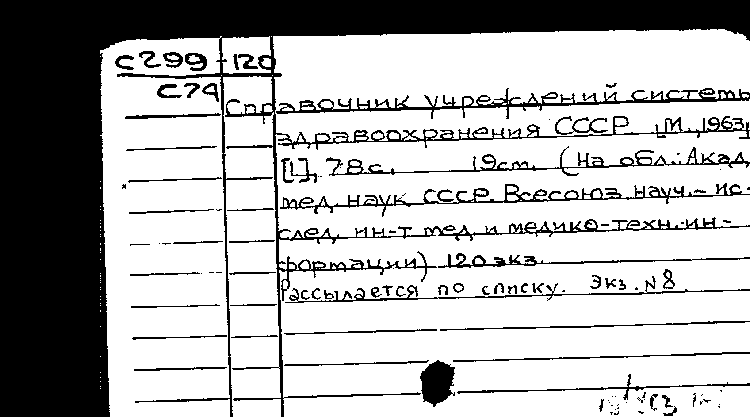 С299-120
С74
Справочник учреждений системы
здравоохранения СССР [М., 1963]
[1], 78с. 19см. (На обл.: Акад.
мед. наук СССР. Всесоюз. науч.-ис-
след. ин-т мед. и медико-техн. ин-
формации) 120 экз.
Рассылается по списку. Экз. N8